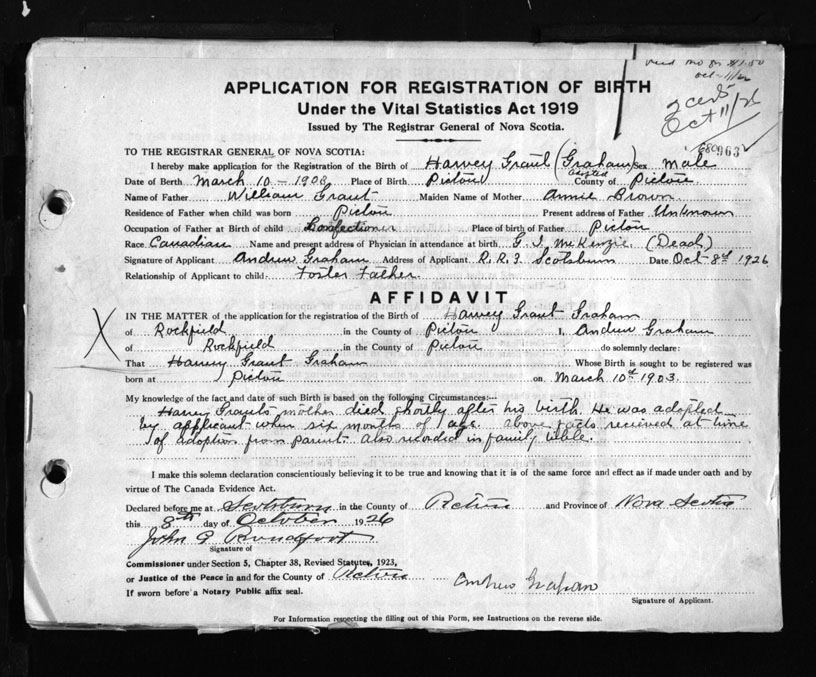 Oct 11/26
APPLICATION FOR REGISTRATION OF BIRTH
Under the Vital Statistics Act 1919
Issued by The Registrar General of Nova Scotia.
2 certs
Oct 11/26
TO THE REGISTRAR GENERAL OF NOVA SCOTIA:
I hereby make application for the Registration of the Birth of Harvey Grant (Graham) Sex Male
adopted
Date of Berth March 10 - 1903 Place of Birth Pictou County of Pictou
Name of Father William Grant Maiden Name of Mother Annie Brown
Residence of Father when child was born Pictou Present address of Father Unknown
Occupation of Father at Birth of child Confectioner Place of birth of Father Pictou
Race Canadian Name and present address of Physician in attendance at birth G. I. McKenzie (Dead)
Signature of Applicant Andrew Graham Address of Applicant R.R.3 Scotsburn Date Oct 8th 1926
Relationship of Applicant to child Foster Father
AFFIDAVIT
IN THE MATTER of the application for the registration of the Birth of Harvey Grant Graham
of Rockfield in the County of Pictou I, Andrew Graham
of Rockfield in the County of Pictou do solemnly declare:
That Harvey Grant Graham Whose Birth is sought to be registered was
born at Pictou on March 10th 1903.
My knowledge of the fact and date of such Birth is based on the following Circumstances:—
Harvey Grant's mother died shortly after his birth. He was adopted
by applicant when six months of age. above facts recieved at time
of adoption from parent. also recorded in family bible.
I make this solemn declaration conscientiously believing it to be true and knowing that it is of the same force and effect as if made under oath and by
virtue of The Canada Evidence Act.
Declared before me at Scotsburn in the County of Pictou and Province of Nova Scotia
this 8th day of October 1926
John
Signature of
Commissioner under Section 5, Chapter 38, Revised Statutes, 1923,
or Justice of the Peace in and for the County of Pictou
If sworn before a Notary Public affix seal.
Andrew Graham
Signature of Applicant.
For Information respecting the filling out of this Form, see Instructions on the reverse side.